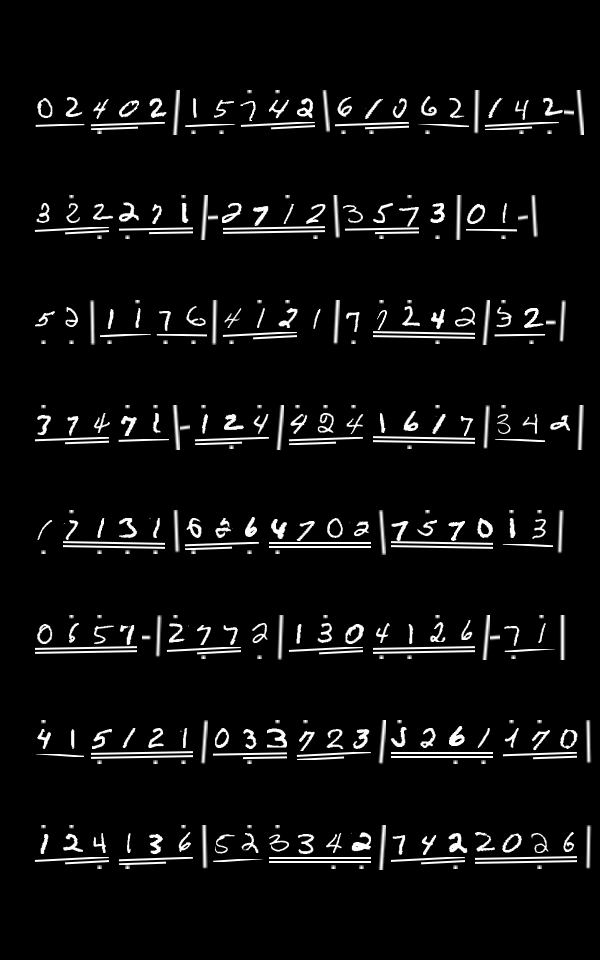 02402|15742|61062|142-|
322271|-2712|3573|01-|
52|1176|4121|77242|32-|
37471|-124|4241617|342|
17131|6264702|57013|
0657-|2772|1304126|-71|
415121|033723|3261170|
124136|523342|7422026|